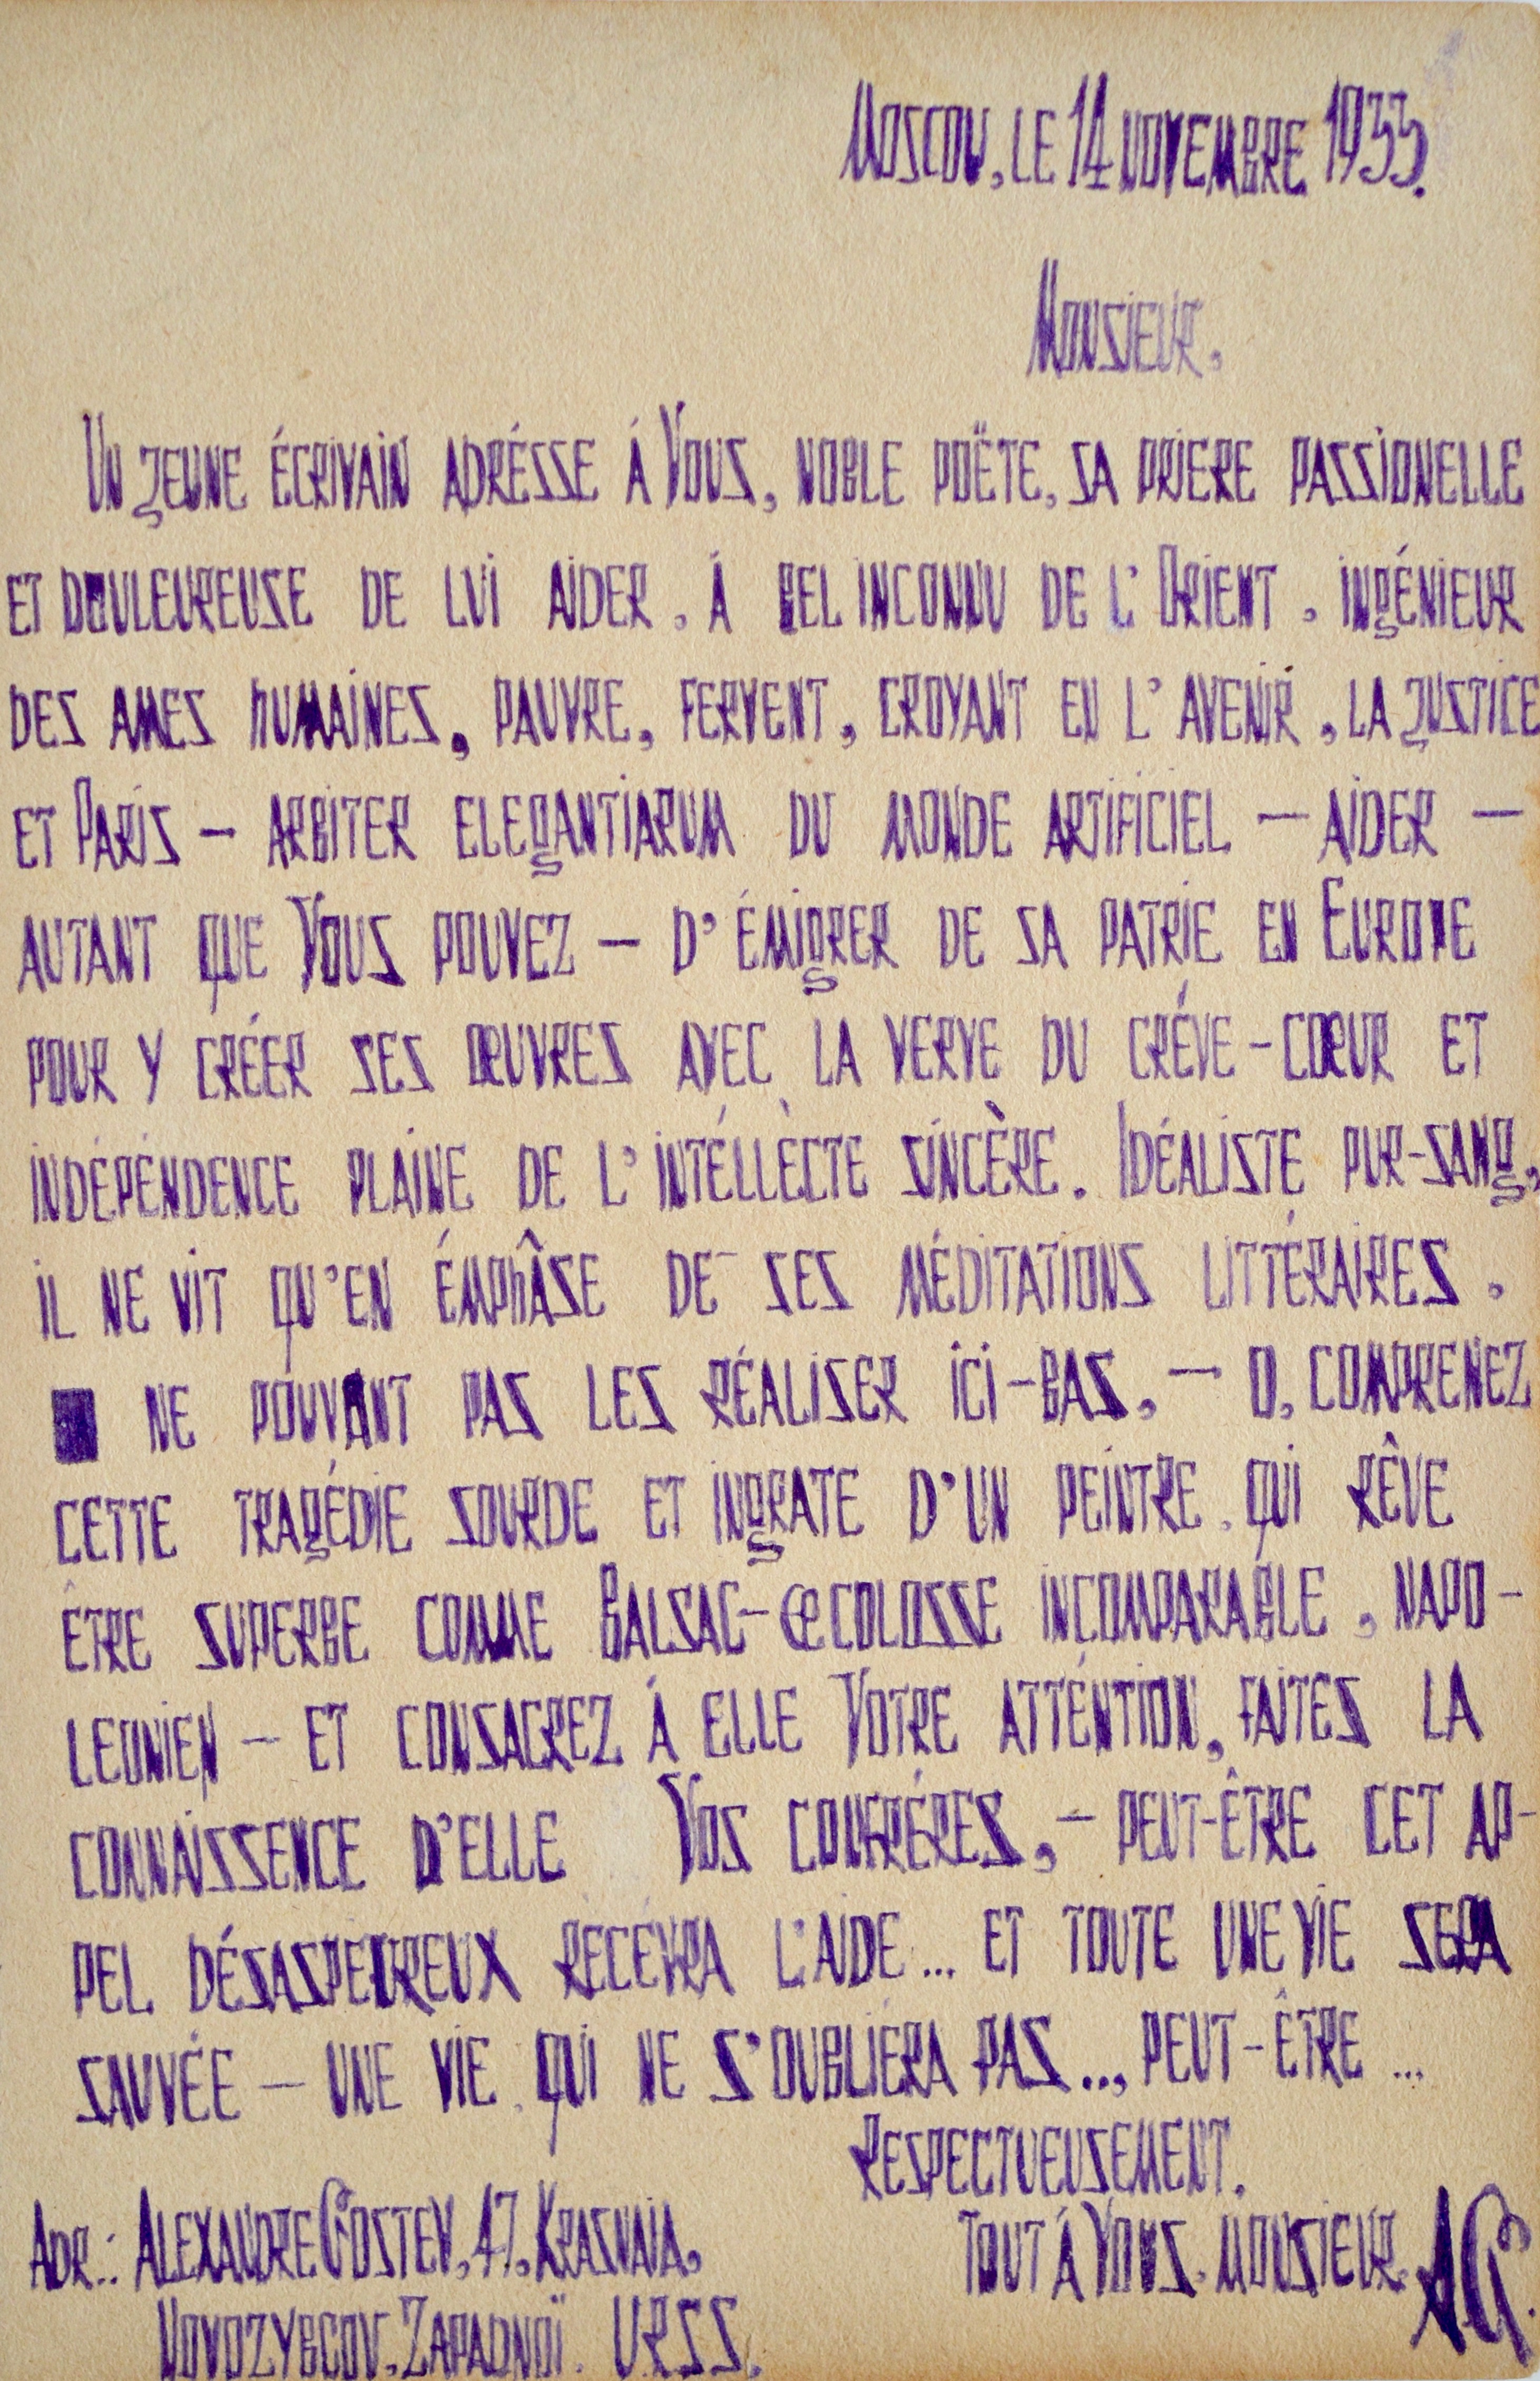 Moscou, le 14 novembre 1933.
Monsieur,
Un jeune écrivain adrésse á Vous, noble poëte, sa priere passionelle
et douleureuse de lui aider. Á bel inconnu de l'Orient, ingénieur
des ames humaines, pauvre, fervent, croyant en l'avenir, la justice
et Paris — arbiter elegantiarum du monde artificiel — aider —
autant que Vous pouvez — d'émigrer de sa patrie en Europe
pour y créer ses œuvres avec la verve du créve-cœur et
indépéndence plaine de l'intéllècte sincère. Idéaliste pur-sang,
il ne vit qu'en émphâse de ses méditations littéraires.
ne pouvant pas les réaliser ici-bas, — o, comprenez
cette tragédie sourde et ingrate d'un peintre, qui rêve
être superbe comme Balsac — ce colosse incomparable, napo-
leonien — et consacrez á elle Votre atténtion, faites la
connaissence d'elle Vos confréres, — peut-être cet ap-
pel désaspeureux récévra l'aide... et toute une vie sera
sauvée — une vie, qui ne s'oubliéra pas..., peut-être...
Respectueusement.
Tout á Vous, monsieur, AG.
Adr.: Alexandre Gostev, 47, Krasnaia,
Novozybcov, Zapadnoï. U.R.S.S.